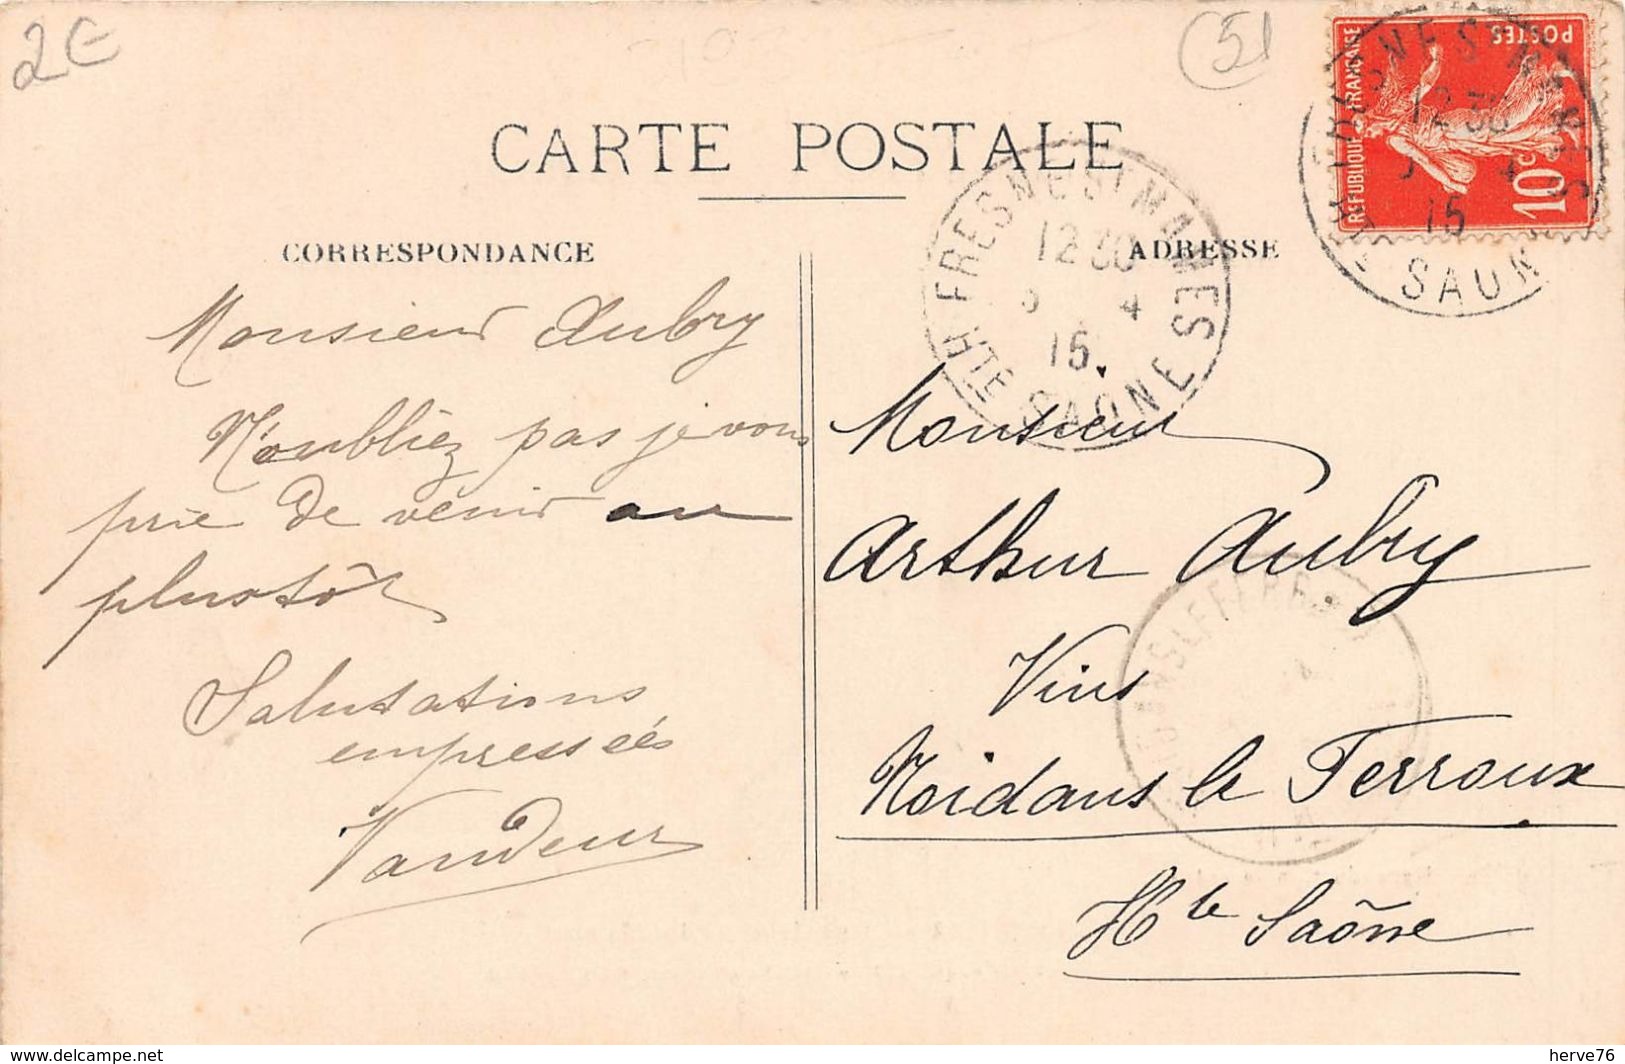 2€
51
CARTE POSTALE
CORRESPONDANCE
ADRESSE
REPUBLIQUE FRANCAISE
POSTES
10c
FRESNE St MAMES
12 30
4
15
Hte SAONE
FRESNE St MAMES
12 30
4
15
Hte SAONE
Monsieur Aubry
N'oubliez pas je vous
prie de venir au
plustôt
Salutations
empressées
Vandeur
Monsieur
Arthur Aubry
Vins
Noidans le Ferroux
Hte Saône
www.delcampe.net
herve76